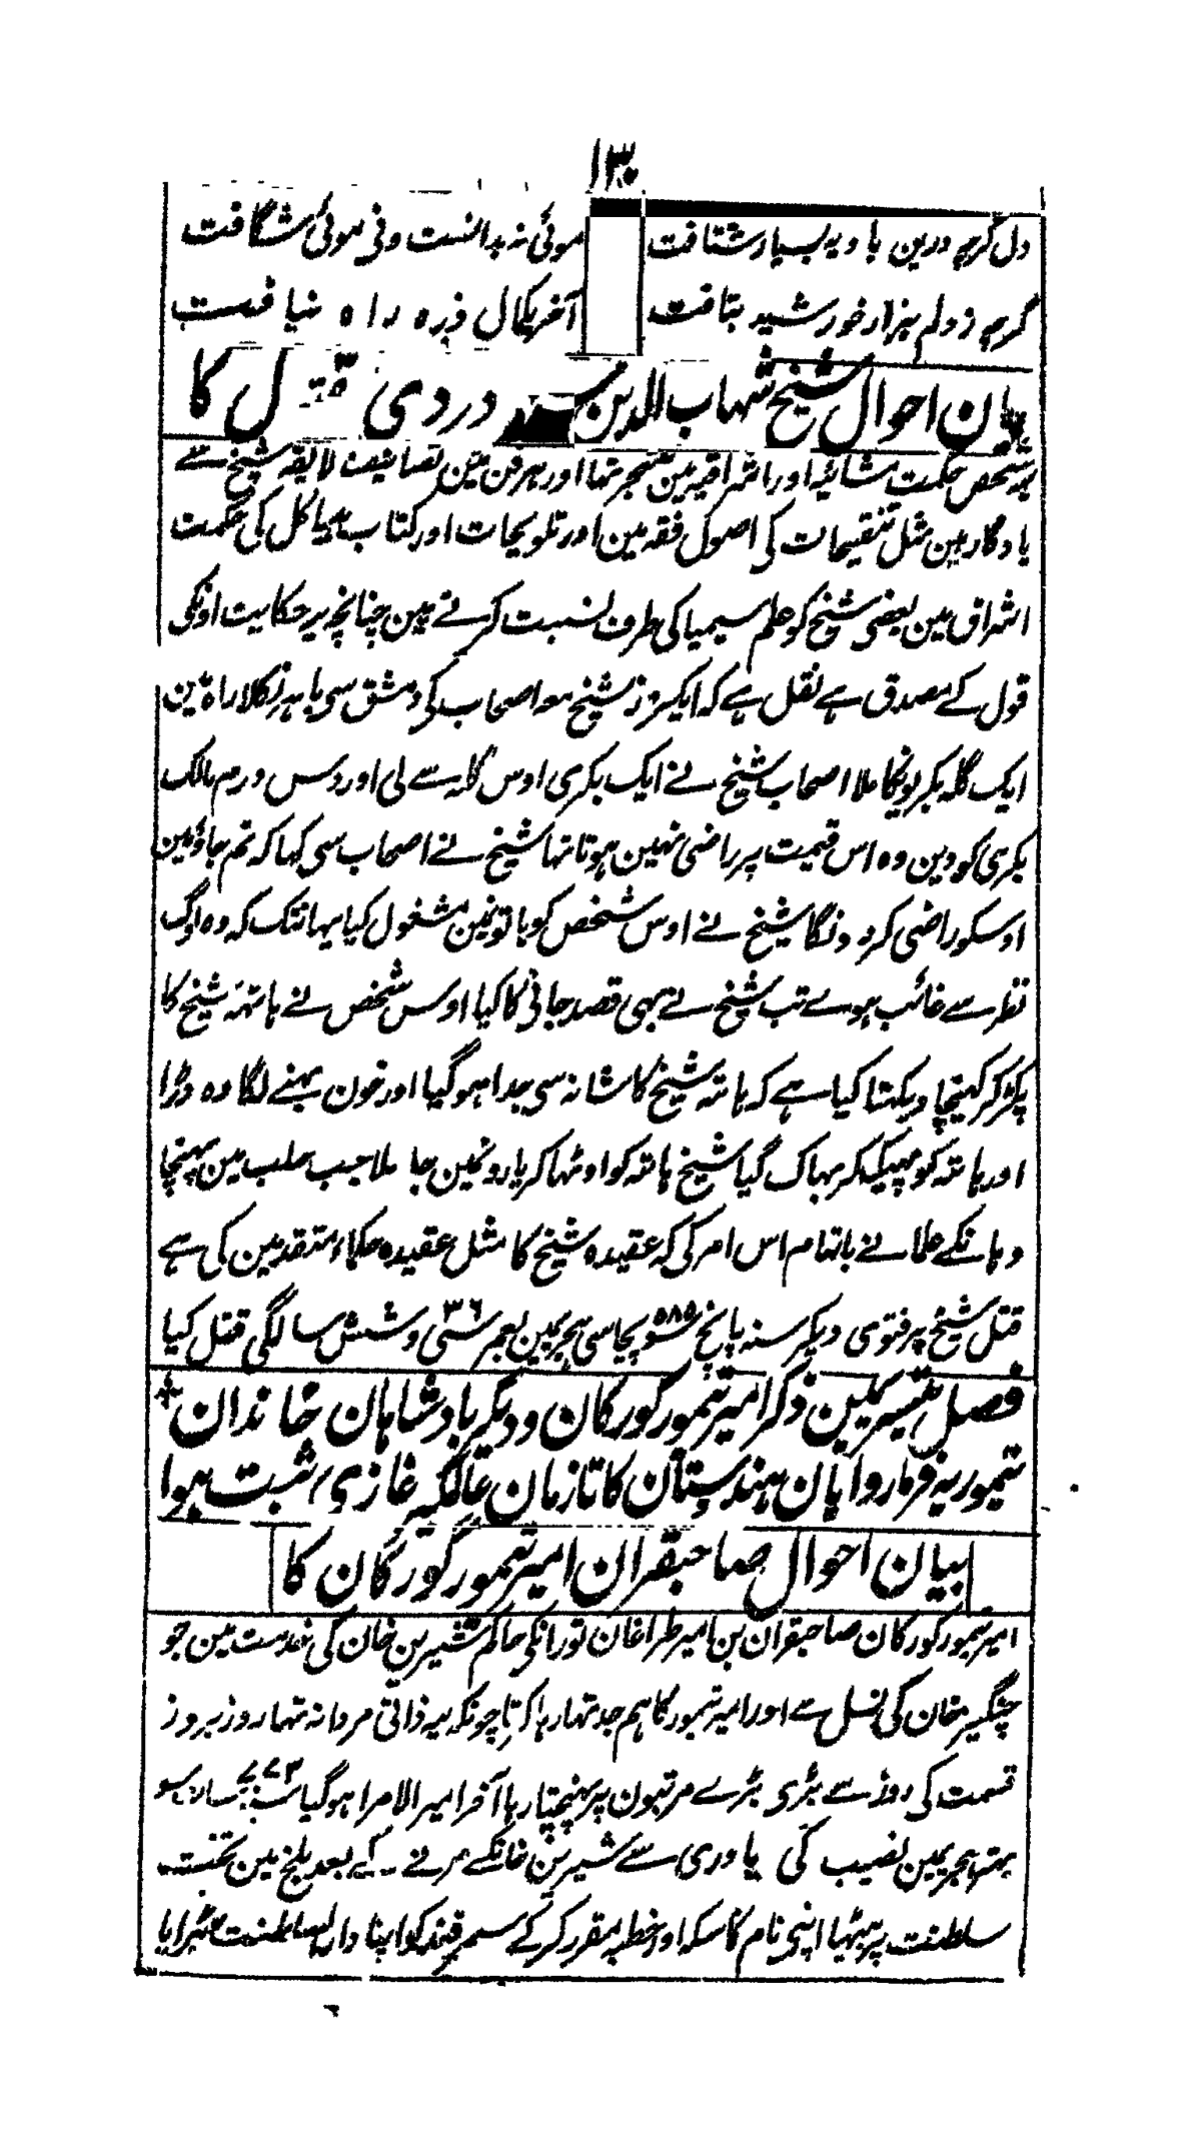 ۱۳۰
دل گرچہ درین بادیہ بسیار شتافت موئی نہ بدانست ولی موئی شگافت
گرچہ ز دلم ہزار خورشید بتافت آخر بکمال ذرہ راہ نیافت
بیان احوال شیخ شہاب الدین سہروردی قتل کا
یہ شخص حکمت مشائیہ اور اشراقیہ مین متبحر تہا اور ہر فن مین تصانیف لایقہ شیخ سے
یادگار ہین مثل تنقیحات کی اصول فقہ مین اور تلویحات اور کتاب ہیاکل کی حکمت
اشراق مین بعضی شیخ کو علم سیمیا کی طرف نسبت کرتے ہین چنانچہ یہ حکایت اونکی
قول کے مصدق ہے نقل ہے کہ ایکروز شیخ مع اصحاب کے دمشق سی باہر نکلا راہ مین
ایک گلہ بکریونکا ملا اصحاب شیخ نے ایک بکری اوس گلہ سے لی اور دس درم مالک
بکری کو دین وہ اس قیمت پر راضی نہین ہوتا تہا شیخ نے اصحاب سی کہا کہ تم جاؤ مین
اوسکو راضی کر دونگا شیخ نے اوس شخص کو باتونمین مشغول کیا یہانتک کہ وہ لوگ
نظر سے غائب ہوے تب شیخ نے بہی قصد جانی کا کیا اوس شخص نے ہاتہہ شیخ کا
پکڑ کر کہینچا دیکہتا کیا ہے کہ ہاتہ شیخ کا شانہ سی جدا ہو گیا اور خون بہنے لگا وہ ڈرا
اور ہاتہ کو پہینک کر بہاگ گیا شیخ ہاتہ کو اوٹہا کر یارونمین جا ملا جب حلب مین پہنچا
وہانکے علمانے باتہام اس امر کی کہ عقیدہ شیخ کا مثل عقیدہ حکماء متقدمین کی ہے
قتل شیخ پر فتوی دیکر سنہ پانچ سو پچاسی ۵۸۵ ہجریمین بعمر سی و شش ۳۶ سالگی قتل کیا
فصل تیسریمین ذکر امیر تیمور گورکان و دیگر بادشاہان خاندان
تیموریہ فرمانروایان ہندوستان کا تا زمان عالمگیر غازی ثبت ہوا
بیان احوال صاحبقران امیر تیمور گورکان کا
امیر تیمور گورکان صاحبقران بن امیر طراغان تورانکی حاکم شیرین خان کی خدمت مین جو
چنگیز خان کی نسل سے اور امیر تیمور کا ہم جد تہا رہا کرتا چونکہ یہ ذاتی مردانہ تہا روز بروز
قسمت کی روز سے بڑی بڑے مرتبون پر پہنچتا رہا آخر امیر الامرا ہو گیا سنہ ۷۷۳ سات سو
بہتر ہجریمین نصیب کی یاوری سے شیرین خانکے مرنے کے بعد بلخ مین تخت
سلطنت پر بیٹہا اپنی نام کا سکہ اور خطبہ مقرر کر کے سمرقند کو اپنا دار السلطنت ٹہرایا